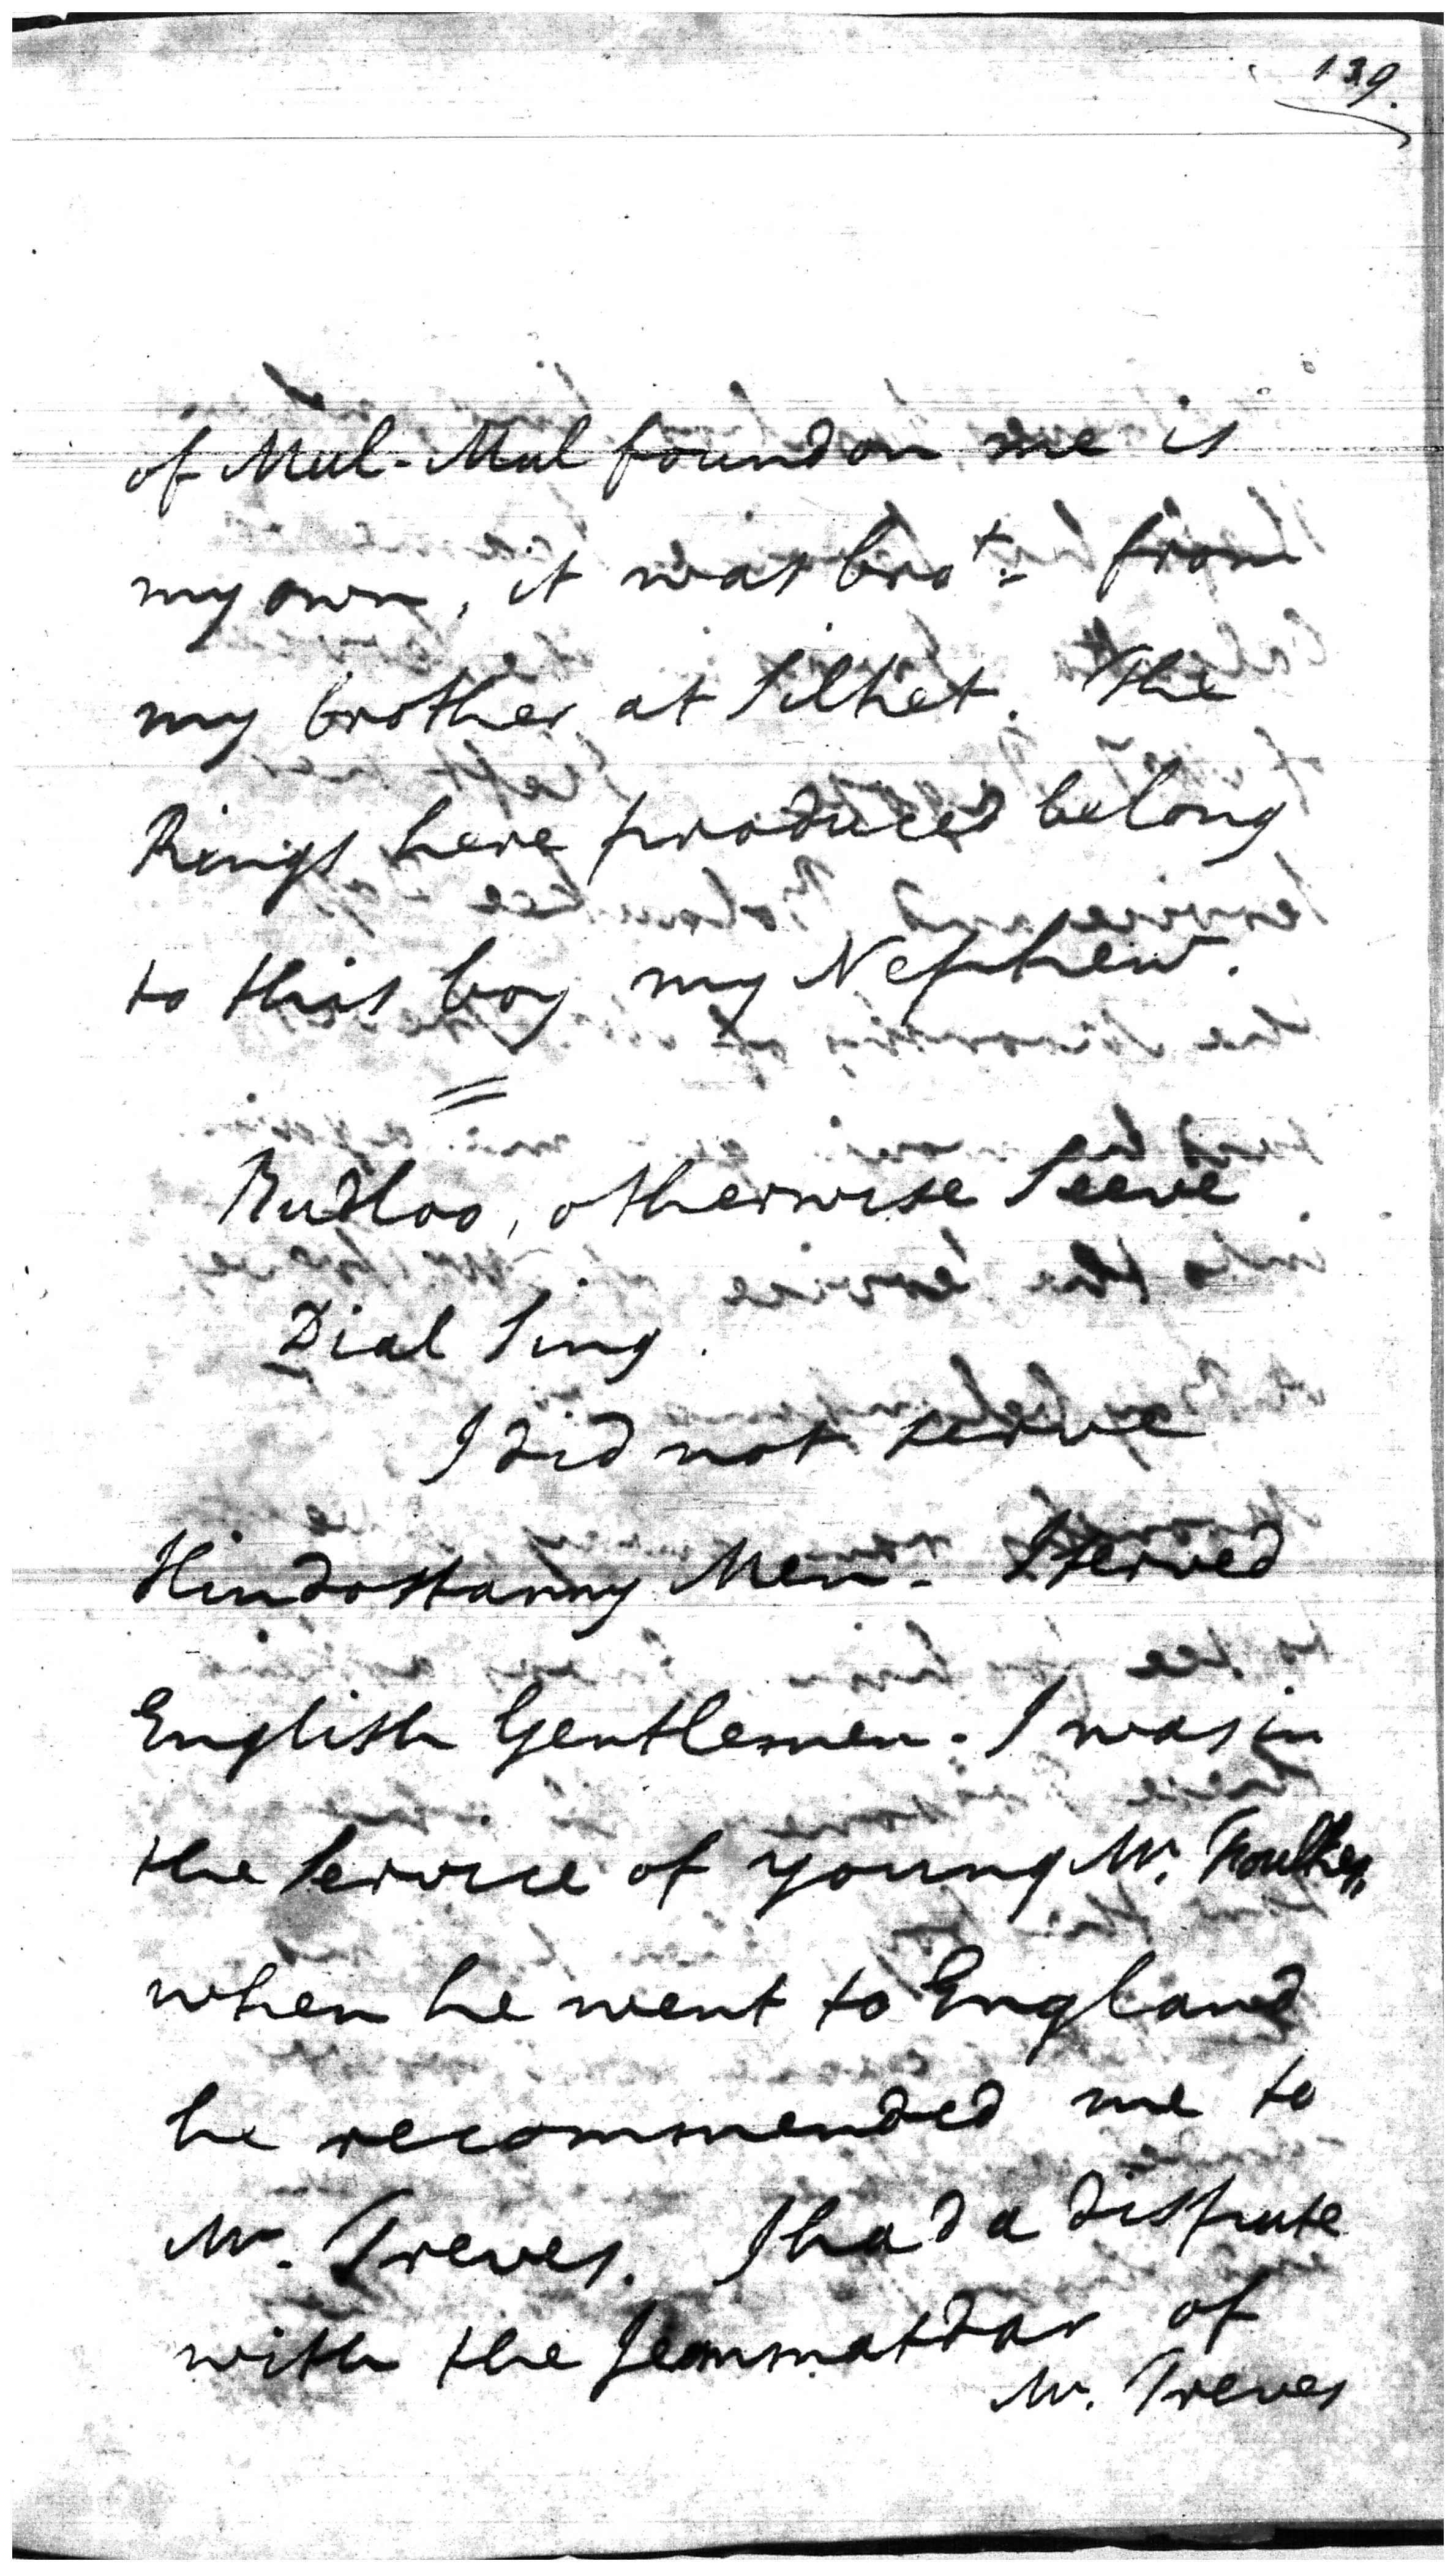 139.
of Mul-Mul found on me is
my own, it was bro.t from
my brother at Silhet. The
Rings here produced belong
to this boy my Nephew.
Budloo, otherwise Seeve
Dial Sing.
I did not serve
Hindostanny Men. I served
English Gentlemen. I was in
the Service of young Mr.
when he went to England
he recommended me to
Mr. Treves. I had a dispute
with the Jemmatdar of
Mr. Treves